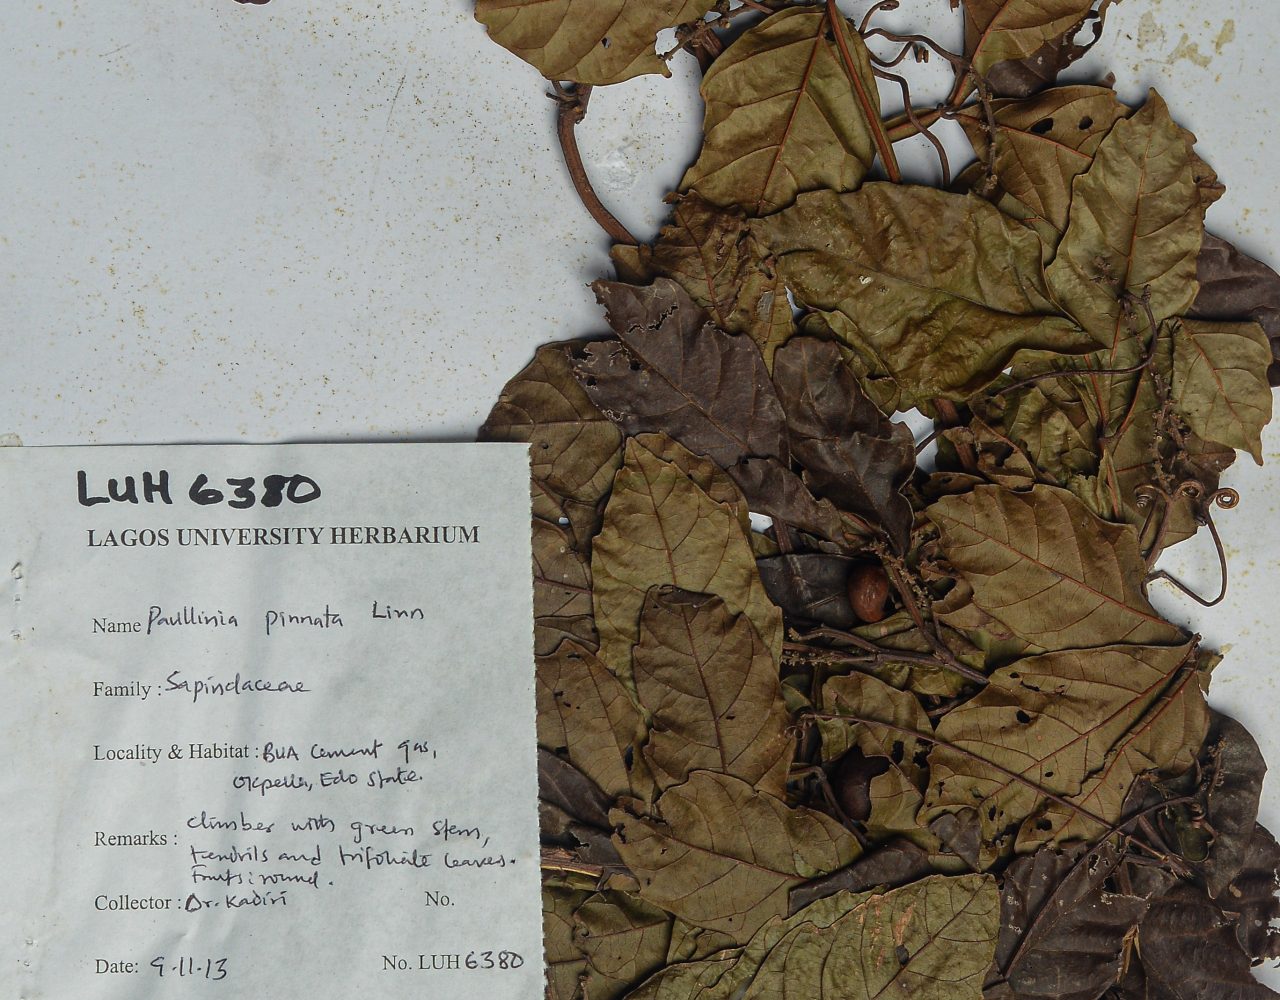 LUH 6380
LAGOS UNIVERSITY HERBARIUM
Name Paullinia pinnata Linn
Family : Sapindaceae
Locality & Habitat : BUA Cement qrs,
Okpella, Edo State.
Remarks : climber with green stem,
tendrils and trifoliate leaves.
fruits : round.
Collector : Dr. Kadiri No.
Date: 9.11.13 No. LUH 6380